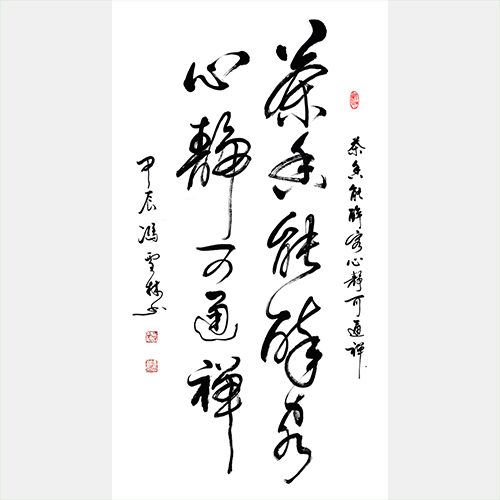 茶香能醉客
心静可通禅
茶香能醉客心静可通禅
甲辰冯雪林书